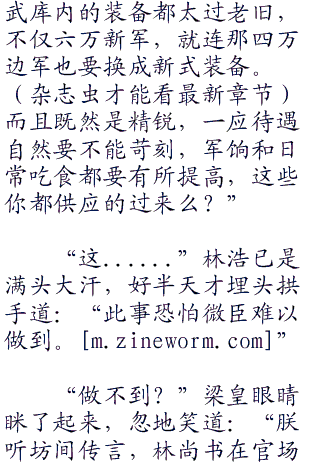 武库内的装备都太过老旧，
不仅六万新军，就连那四万
边军也要换成新式装备。
（杂志虫才能看最新章节）
而且既然是精锐，一应待遇
自然要不能苛刻，军饷和日
常吃食都要有所提高，这些
你都供应的过来么？”
“这......”林浩已是
满头大汗，好半天才埋头拱
手道：“此事恐怕微臣难以
做到。[m.zineworm.com]”
“做不到？”梁皇眼睛
眯了起来，忽地笑道：“朕
听坊间传言，林尚书在官场